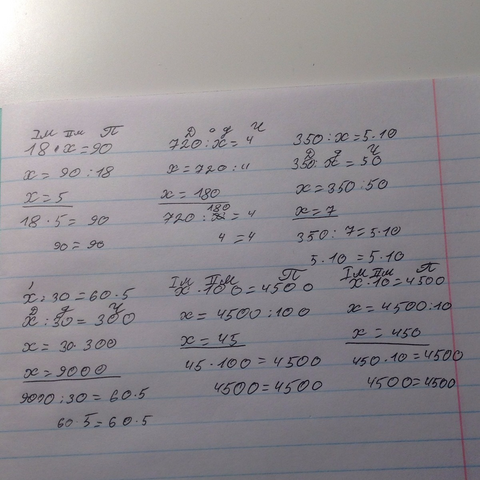 Iм IIм П
18 · x = 90
x = 90 : 18
x = 5
18 · 5 = 90
90 = 90
Д д Ч
720 : x = 4
x = 720 : 4
x = 180
180
720 : x = 4
4 = 4
350 : x = 5 · 10
Д д Ч
350 : x = 50
x = 350 : 50
x = 7
350 : 7 = 5 · 10
5 · 10 = 5 · 10
x : 30 = 60 · 5
Д д Ч
x : 30 = 300
x = 30 · 300
x = 9000
9000 : 30 = 60 · 5
60 · 5 = 60 · 5
Iм IIм П
x · 100 = 4500
x = 4500 : 100
x = 45
45 · 100 = 4500
4500 = 4500
Iм IIм П
x · 10 = 4500
x = 4500 : 10
x = 450
450 · 10 = 4500
4500 = 4500